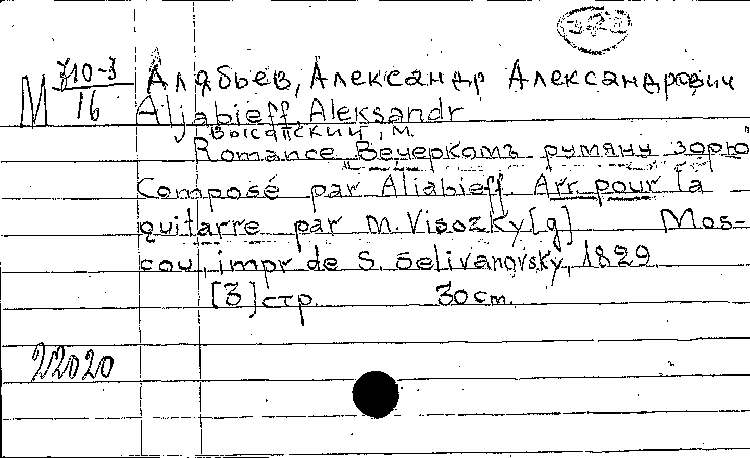 373
М 710-3/16
Алябьев, Александр Александрович
Aljabieff, Aleksandr
Высотский, М.
Romance Вечеркомъ румяну зорю
Composé par Aliabieff. Arr. pour la
guitarre par M. Visozky [g] Mos-
cou, impr. de S. Selivanovsky, 1829
[3] стр. 30 cm.
22020